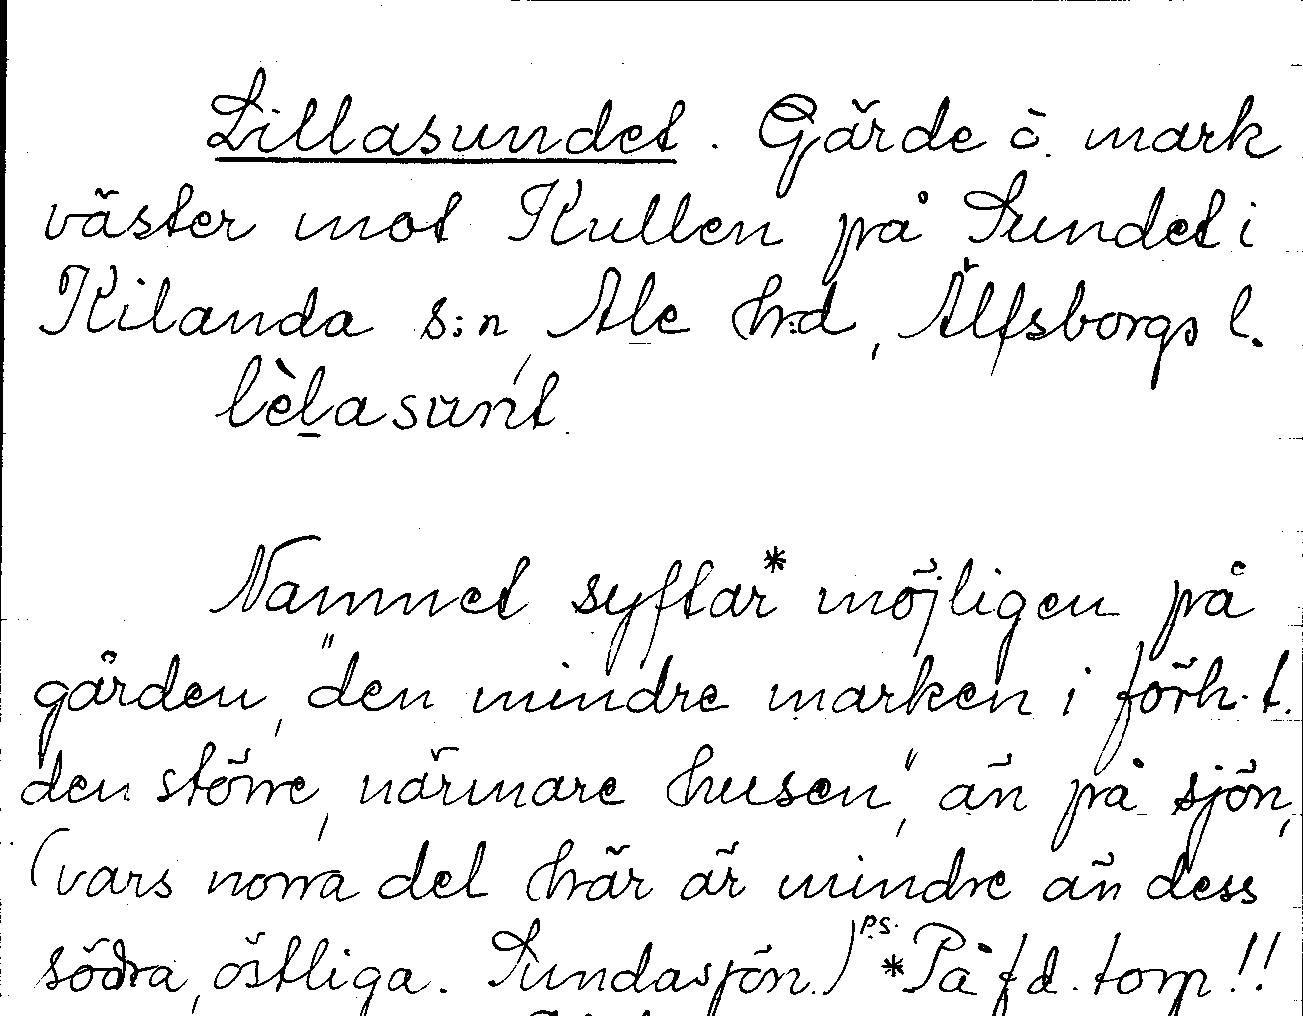 Lillasundet. Gärde o. mark
väster mot Kullen på Sundet i
Kilanda s:n, Ale hrd, Älfsborgs l.
lèlasunt.
Namnet syftar* möjligen på
gården, "den mindre marken i förh. t.
den större, närmare husen", än på sjön,
(vars norra del här är mindre än dess
södra, östliga. Sundasjön.) P.S. *På f.d. torp!!